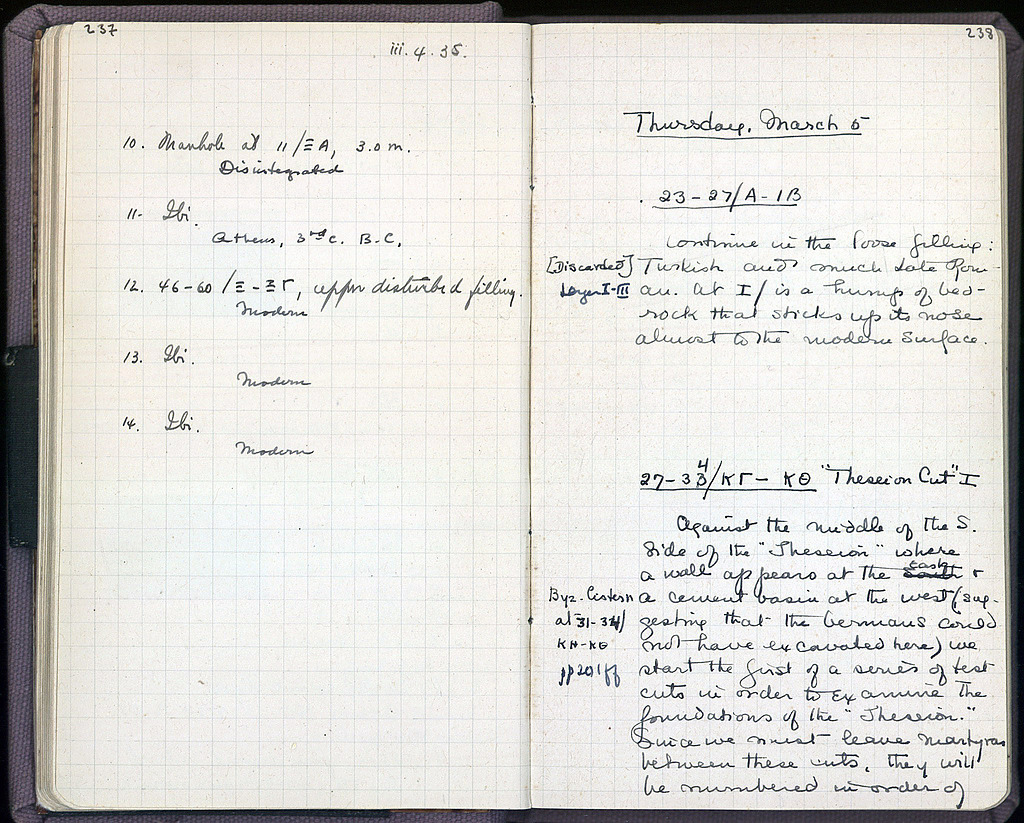 237
iii. 4. 35.
10. Manhole at 11/ΞA, 3.0 m.
Disintegrated
11. Ibi.
Athens, 3rd c. B.C.
12. 46-60/Ξ-ΞΓ, upper disturbed filling.
Modern
13. Ibi.
Modern
14. Ibi.
Modern
238
Thursday, March 5
23-27/A-IB
Continue in the loose filling:
[Discarded]
Layer I-III
Turkish and much late Rom-
an. At I/ is a hump of bed-
rock that sticks up its nose
almost to the modern surface.
27-334/KΓ-KΘ "Theseion Cut" I
Against the middle of the S.
side of the "Theseion" where
a wall appears at the South east &
a cement basin at the west (sug-
gesting that the Germans could
not have excavated here) we
start the first of a series of test
cuts in order to examine the
foundations of the "Theseion."
Since we must leave martyras
between these cuts, they will
be numbered in order of
Byz. Cistern
at 31-34/
KH-KΘ
pp 201 ff